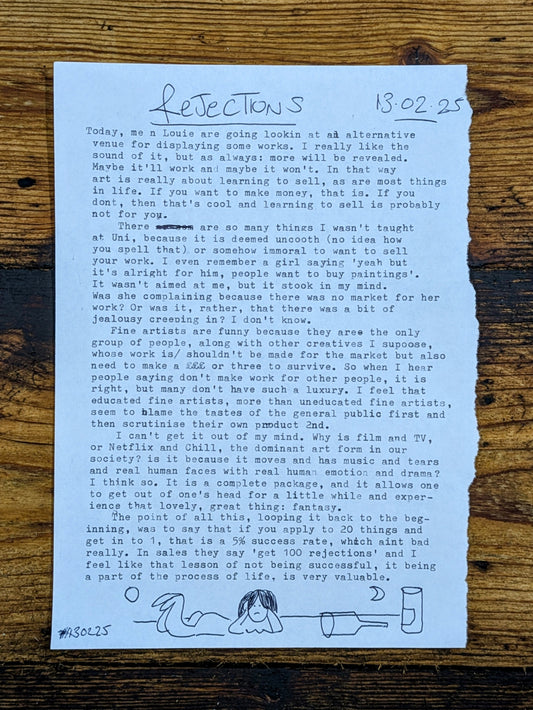 REJECTIONS
13.02.25
Today, me n Louie are going lookin at an alternative
venue for displaying some works. I really like the
sound of it, but as always: more will be revealed.
Maybe it'll work and maybe it won't. In that way
art is really about learning to sell, as are most things
in life. If you want to make money, that is. If you
dont, then that's cool and learning to sell is probably
not for you.
There are so many things I wasn't taught
at Uni, because it is deemed uncooth (no idea how
you spell that) or somehow immoral to want to sell
your work. I even remember a girl saying 'yeah but
it's alright for him, people want to buy paintings'.
It wasn't aimed at me, but it stook in my mind.
Was she complaining because there was no market for her
work? Or was it, rather, that there was a bit of
jealousy creeping in? I don't know.
Fine artists are funny because they aree the only
group of people, along with other creatives I supoose,
whose work is/ shouldn't be made for the market but also
need to make a £££ or three to survive. So when I hear
people saying don't make work for other people, it is
right, but many don't have such a luxury. I feel that
educated fine artists, more than uneducated fine artists,
seem to blame the tastes of the general public first and
then scrutinise their own product 2nd.
I can't get it out of my mind. Why is film and TV,
or Netflix and Chill, the dominant art form in our
society? is it because it moves and has music and tears
and real human faces with real human emotion and drama?
I think so. It is a complete package, and it allows one
to get out of one's head for a little while and exper-
ience that lovely, great thing: fantasy.
The point of all this, looping it back to the beg-
inning, was to say that if you apply to 20 things and
get in to 1, that is a 5% success rate, which aint bad
really. In sales they say 'get 100 rejections' and I
feel like that lesson of not being successful, it being
a part of the process of life, is very valuable.
#130225